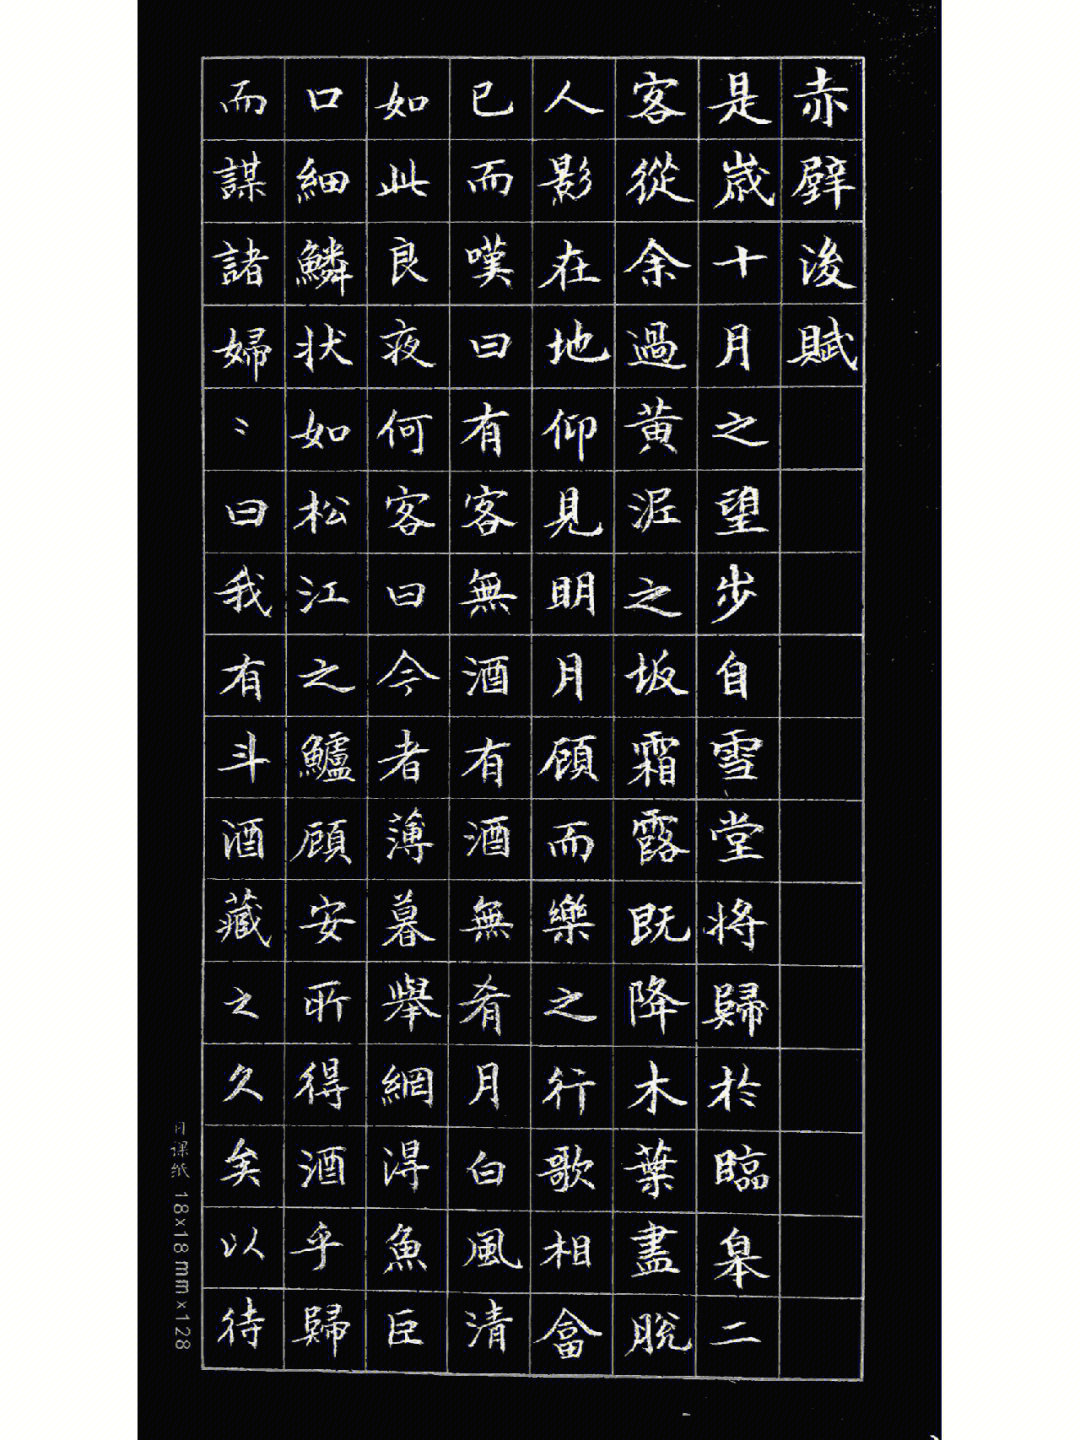 赤壁後賦
是歲十月之望步自雪堂將歸於臨皋二
客從余過黃泥之坂霜露既降木葉盡脫
人影在地仰見明月顧而樂之行歌相畣
已而嘆曰有客無酒有酒無肴月白風清
如此良夜何客曰今者薄暮舉網得魚巨
口細鱗狀如松江之鱸顧安所得酒乎歸
而謀諸婦〻曰我有斗酒藏之久矣以待
日课纸 18×18mm×128